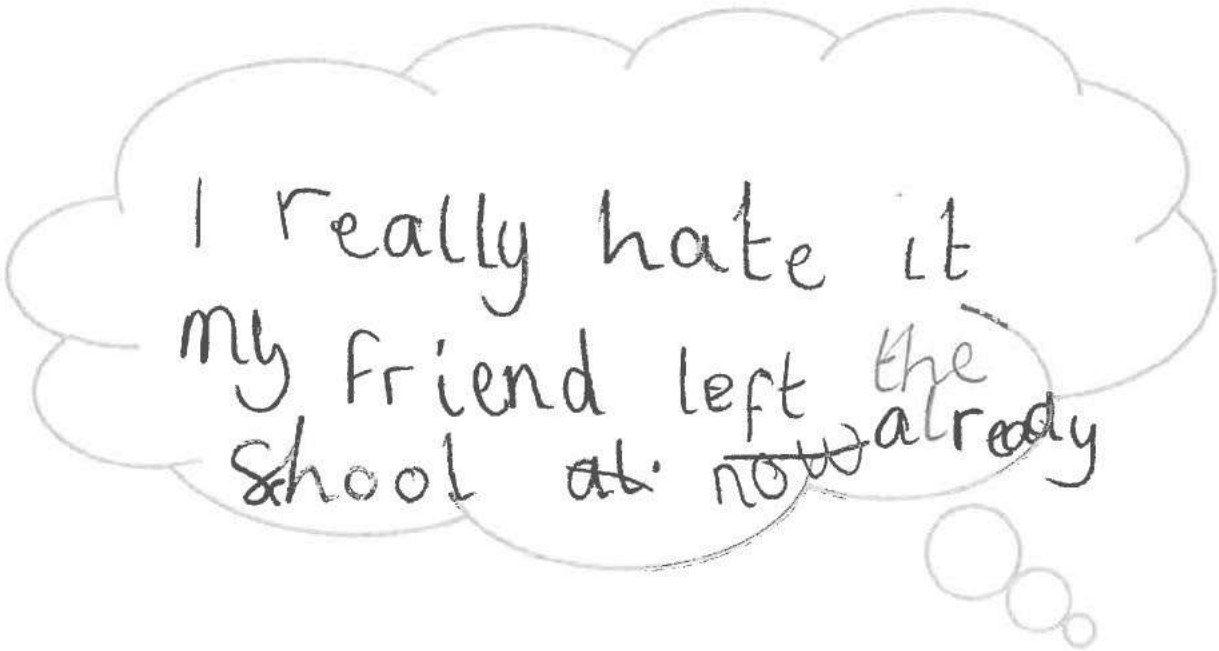 I really hate it
my friend left the
School al now already